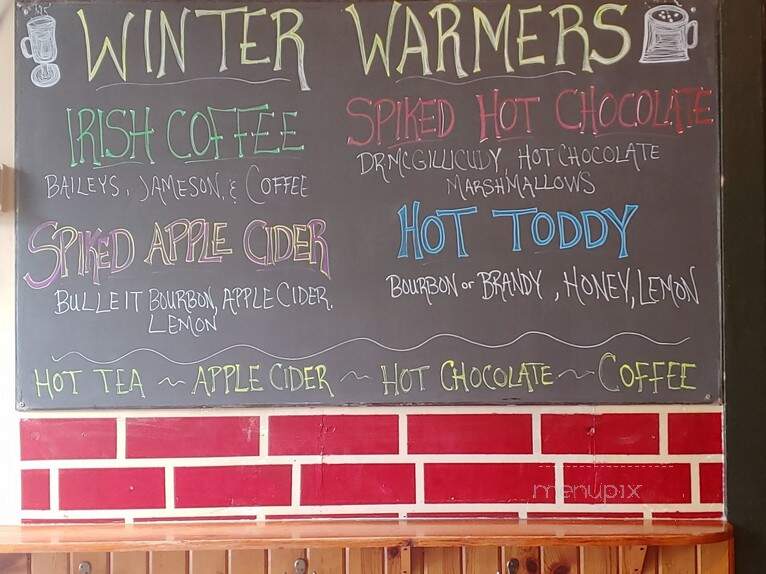 WINTER WARMERS
IRISH COFFEE
BAILEYS, JAMESON, & COFFEE
SPIKED HOT CHOCOLATE
DR MCGILLICUDY, HOT CHOCOLATE
MARSHMALLOWS
SPIKED APPLE CIDER
BULLEIT BOURBON, APPLE CIDER.
LEMON
HOT TODDY
BOURBON or BRANDY, HONEY, LEMON
HOT TEA ~ APPLE CIDER ~ HOT CHOCOLATE ~ COFFEE
menupix